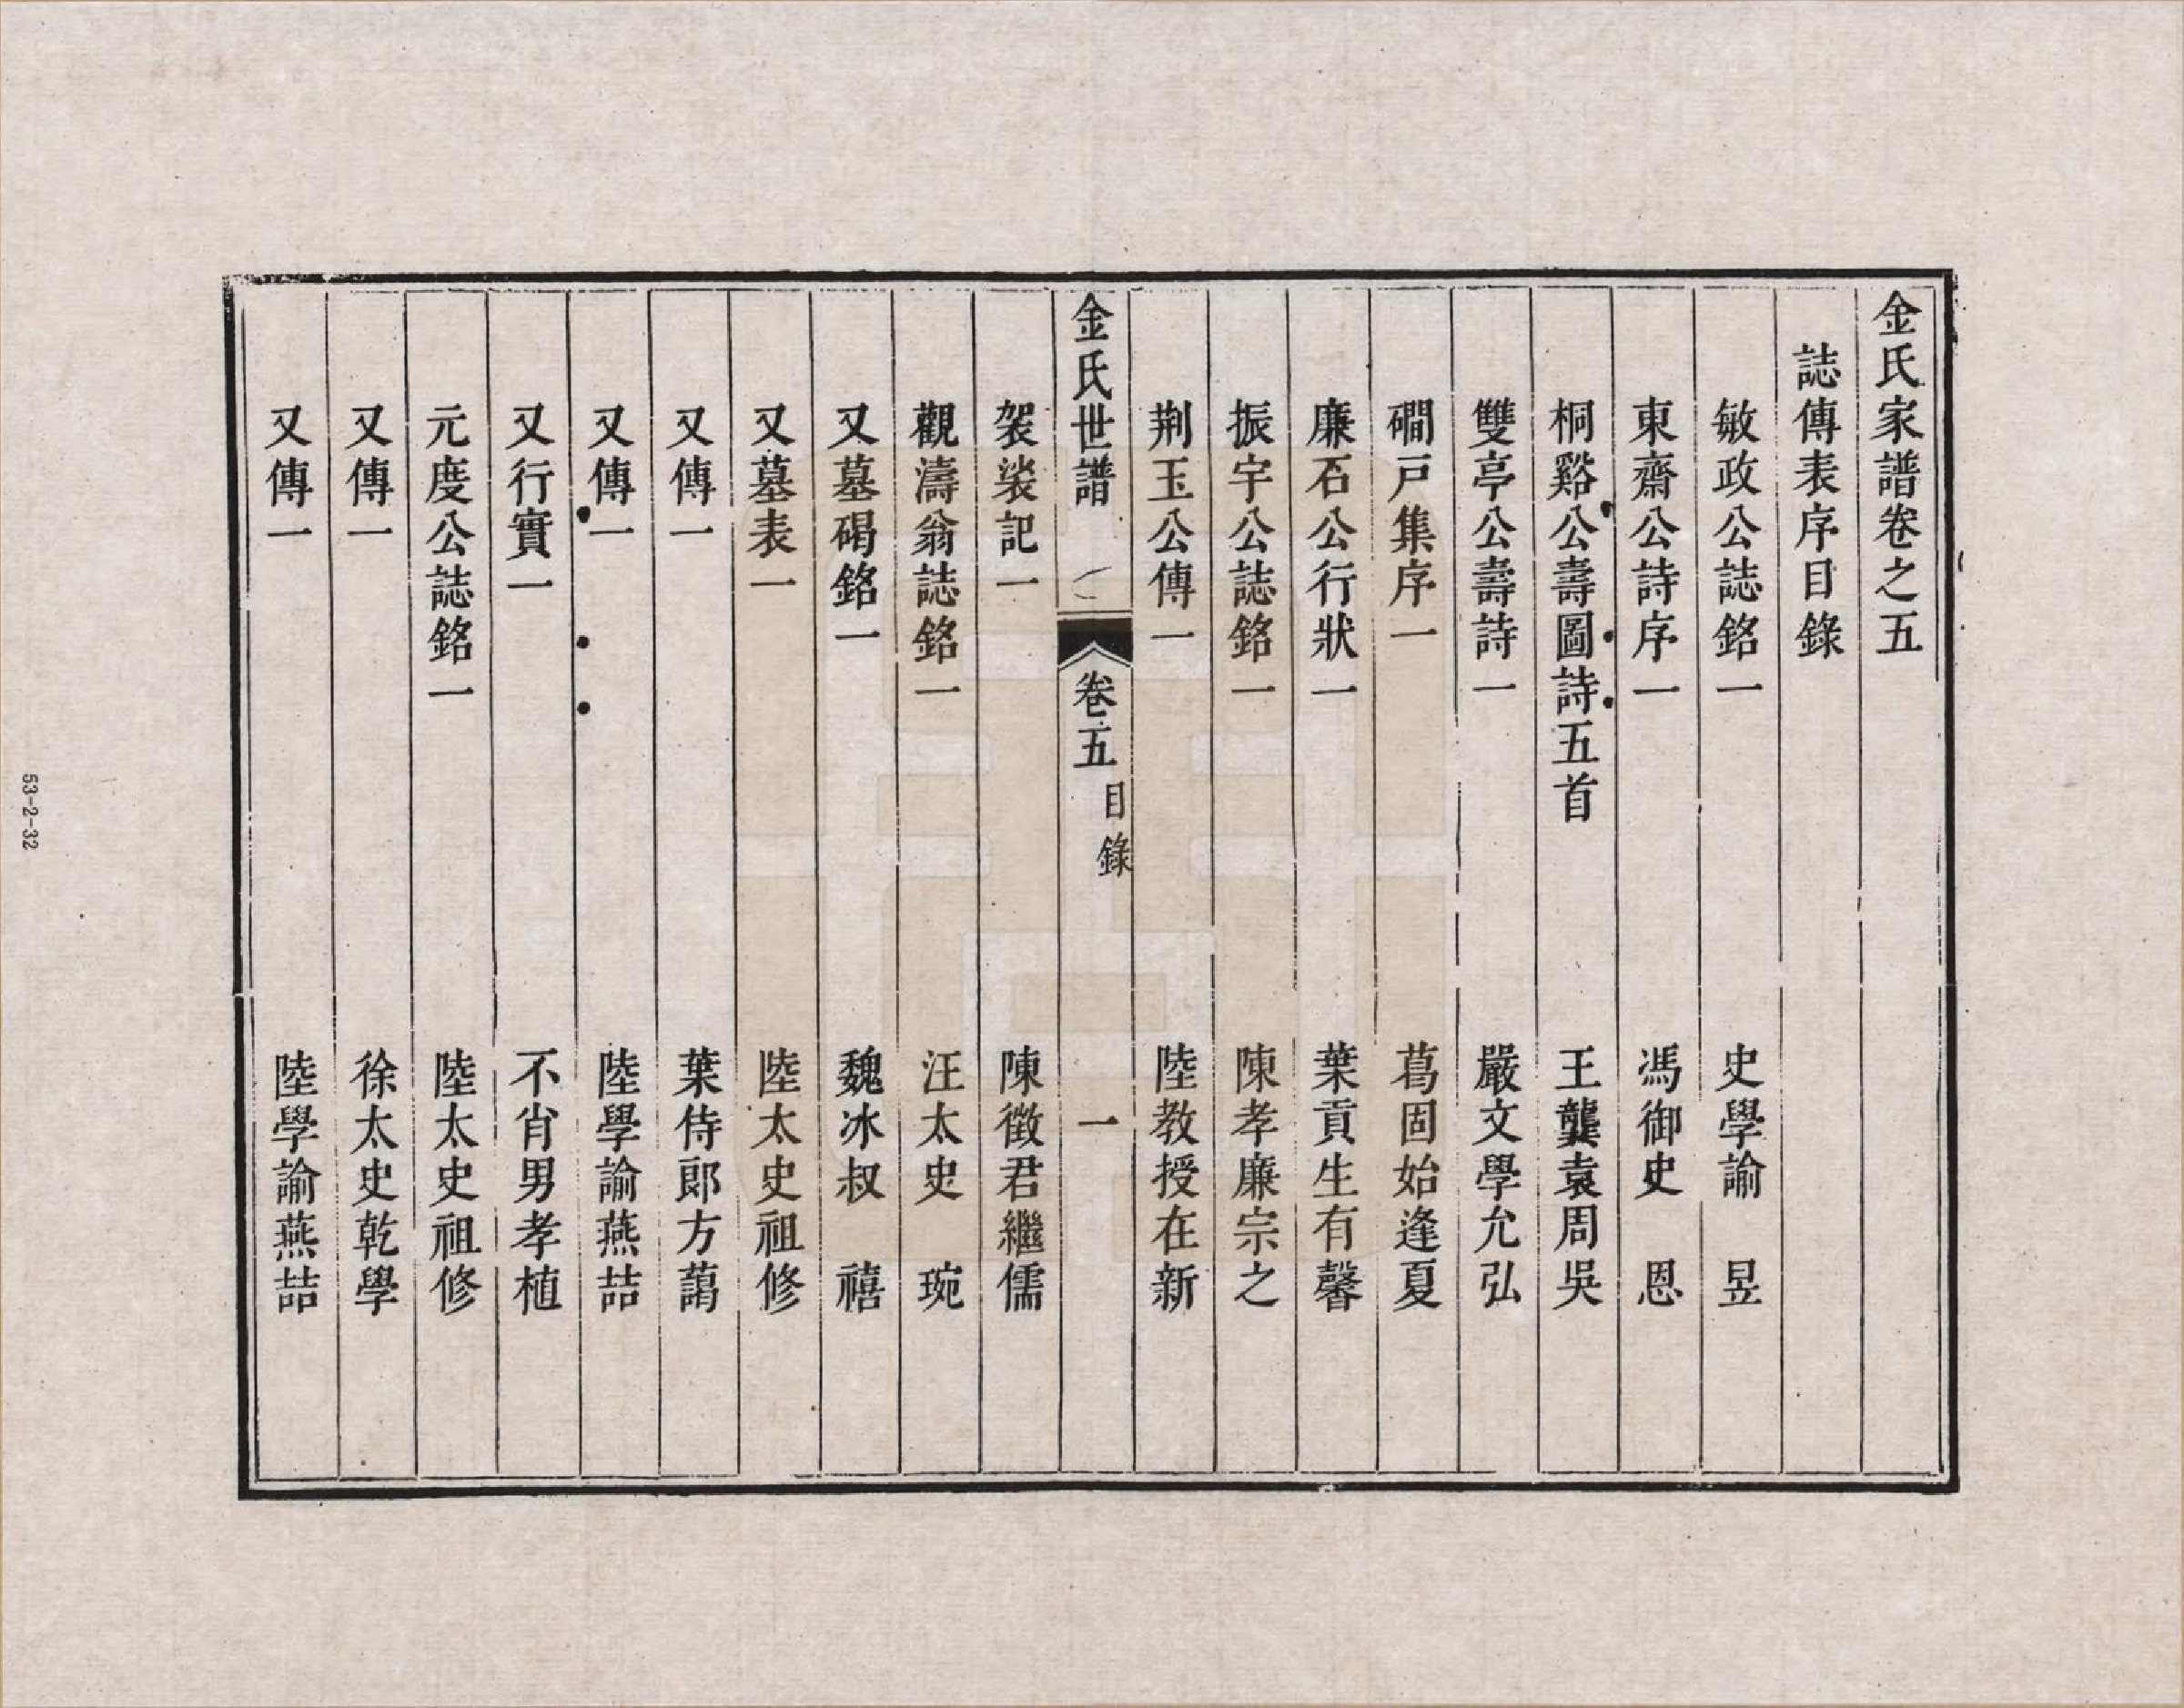 金氏家譜卷之五
誌傳表序目錄
敏政公誌銘一　史學諭　昱
東齋公詩序一　馮御史　恩
桐谿公壽圖詩五首　王龔袁周吳
雙亭公壽詩一　嚴文學允弘
磵戸集序一　葛固始逢夏
廉石公行狀一　葉貢生有馨
振宇公誌銘一　陳孝廉宗之
荆玉公傳一　陸教授在新
金氏世譜　卷五　目錄　一
袈裟記一　陳徵君繼儒
觀濤翁誌銘一　汪太史　琬
又墓碣銘一　魏冰叔　禧
又墓表一　陸太史祖修
又傳一　葉侍郎方藹
又傳一　陸學諭燕喆
又行實一　不肖男孝植
元度公誌銘一　陸太史祖修
又傳一　徐太史乾學
又傳一　陸學諭燕喆
53-2-32